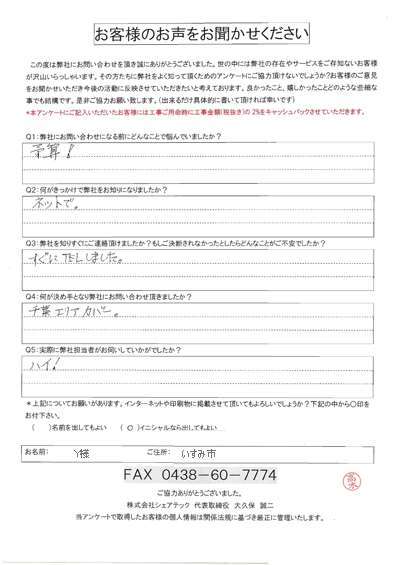 お客様のお声をお聞かせください
この度は弊社にお問い合わせを頂き誠にありがとうございました。世の中には弊社の存在やサービスをご存知ないお客様
が沢山いらっしゃいます。その方たちに弊社をよく知って頂くためのアンケートにご協力頂けないでしょうか?お客様のご意見
をお聞かせいただき今後の活動に反映させていただきたいと考えております。良かったこと、嬉しかったことどのような些細な
事でも結構です。是非ご協力お願い致します。（出来るだけ具体的に書いて頂ければ幸いです）
*本アンケートにご記入いただいたお客様には工事ご用命時に工事金額(税抜き)の 2%をキャッシュバックさせていただきます。
Q1:弊社にお問い合わせになる前にどんなことで悩んでいましたか?
予算!
Q2:何がきっかけで弊社をお知りになりましたか?
ネットで。
Q3:弊社を知りすぐにご連絡頂けましたか?もしご決断されなかったとしたらどんなことがご不安でしたか?
すぐにTELしました。
Q4:何が決め手となり弊社にお問い合わせ頂きましたか?
千葉エリアカバー。
Q5:実際に弊社担当者がお伺いしていかがでしたか?
ハイ!
*上記についてお願いがあります。インターネットや印刷物に掲載させて頂いてもよろしいでしょうか?下記の中から○印を
お付下さい。
（　）名前を出してもよい　（○）イニシャルなら出してもよい
お名前: Y様 ご住所: いすみ市
FAX 0438-60-7774
ご協力ありがとうございました。
株式会社シェアテック 代表取締役 大久保 誠二
当アンケートで取得したお客様の個人情報は関係法規に基づき厳正に管理いたします。